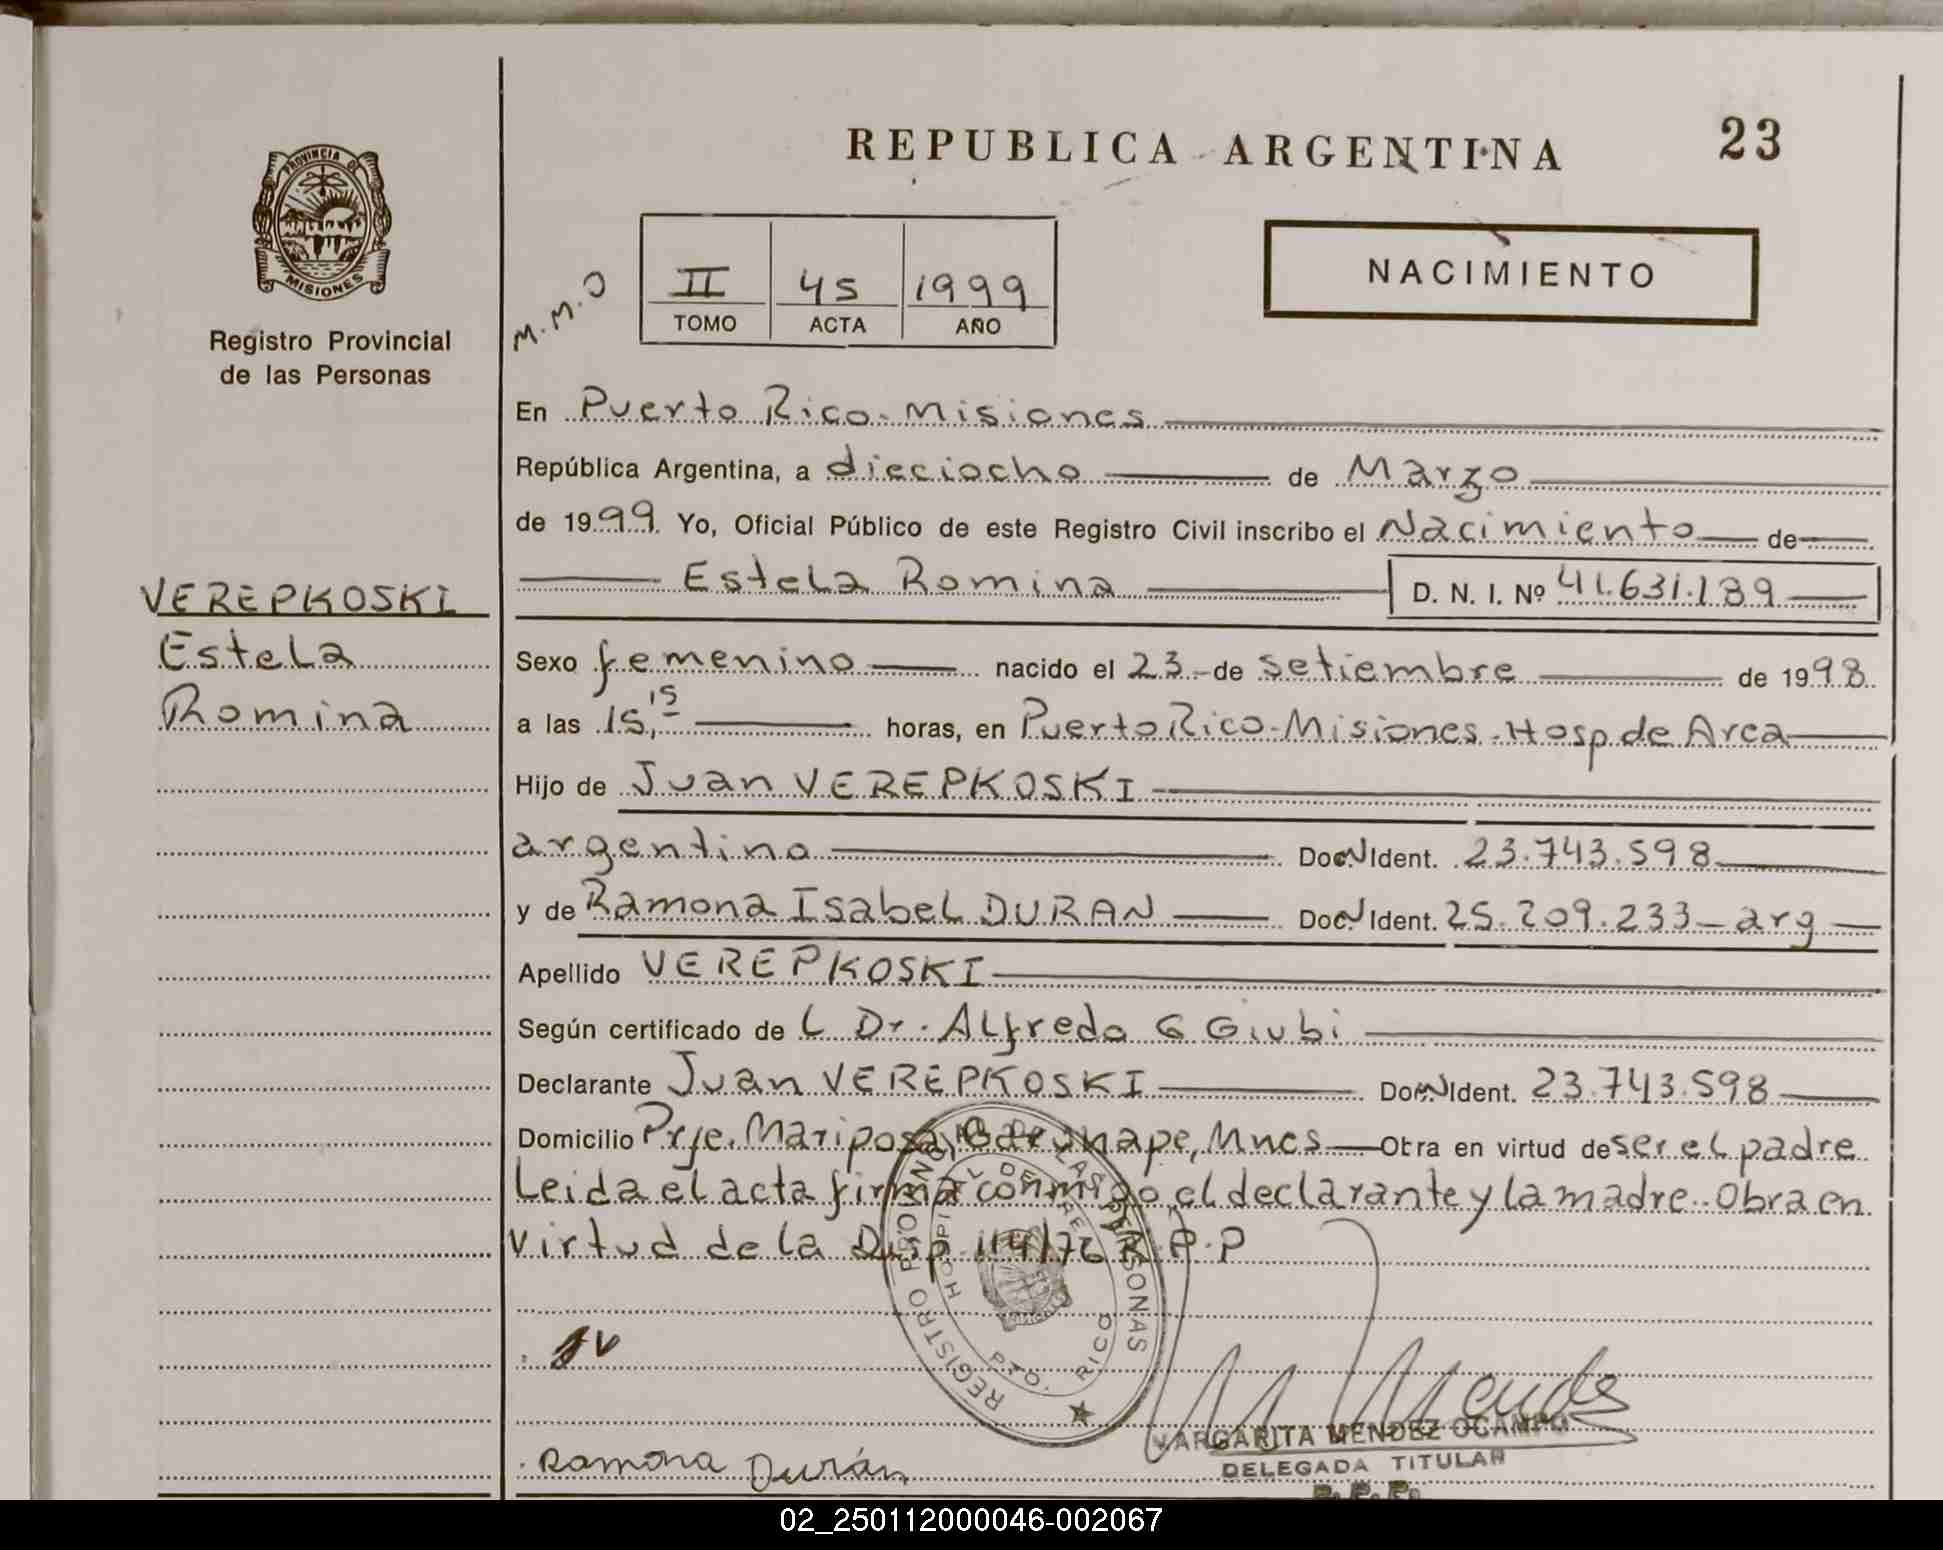 REPUBLICA ARGENTINA
23
PROVINCIA DE
MISIONES
Registro Provincial
de las Personas
M.M.O
II 45 1999
TOMO ACTA AÑO
NACIMIENTO
En Puerto Rico-Misiones
República Argentina, a dieciocho de Marzo
de 1999 Yo, Oficial Público de este Registro Civil inscribo el Nacimiento de
Estela Romina D. N. I. Nº 41.631.189
VEREPKOSKI
Estela
Romina
Sexo femenino nacido el 23 de setiembre de 1998
a las 15,15 horas, en Puerto Rico-Misiones-Hosp de Area
Hijo de Juan VEREPKOSKI
argentino Doc. N Ident. 23.743.598
y de Ramona Isabel DURAN Doc. N Ident. 25.209.233-arg
Apellido VEREPKOSKI
Según certificado de L Dr. Alfredo G Giubi
Declarante Juan VEREPKOSKI Doc. N Ident. 23.743.598
Domicilio Prje. Mariposa, Garuhape, Mnes Obra en virtud de ser el padre
Leida el acta firma conmigo el declarante y la madre. Obra en
virtud de la Disp 114/76 R.P.P
REGISTRO PROVINCIAL DE LAS PERSONAS
PTO. RICO
JV
Ramona Durán
MARGARITA MENDEZ OCAMPO
DELEGADA TITULAR
02_250112000046-002067